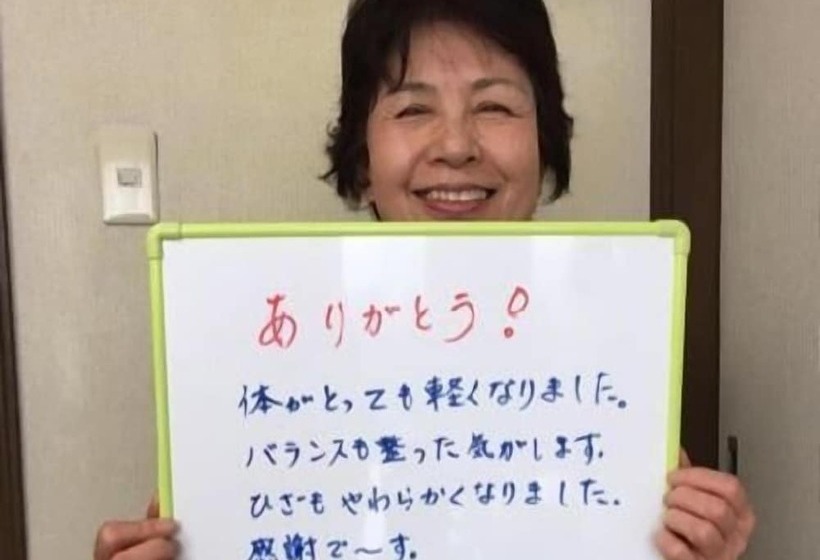 ありがとう!
体がとっても軽くなりました。
バランスも整った気がします.
ひざも やわらかくなりました.
感謝で〜す.